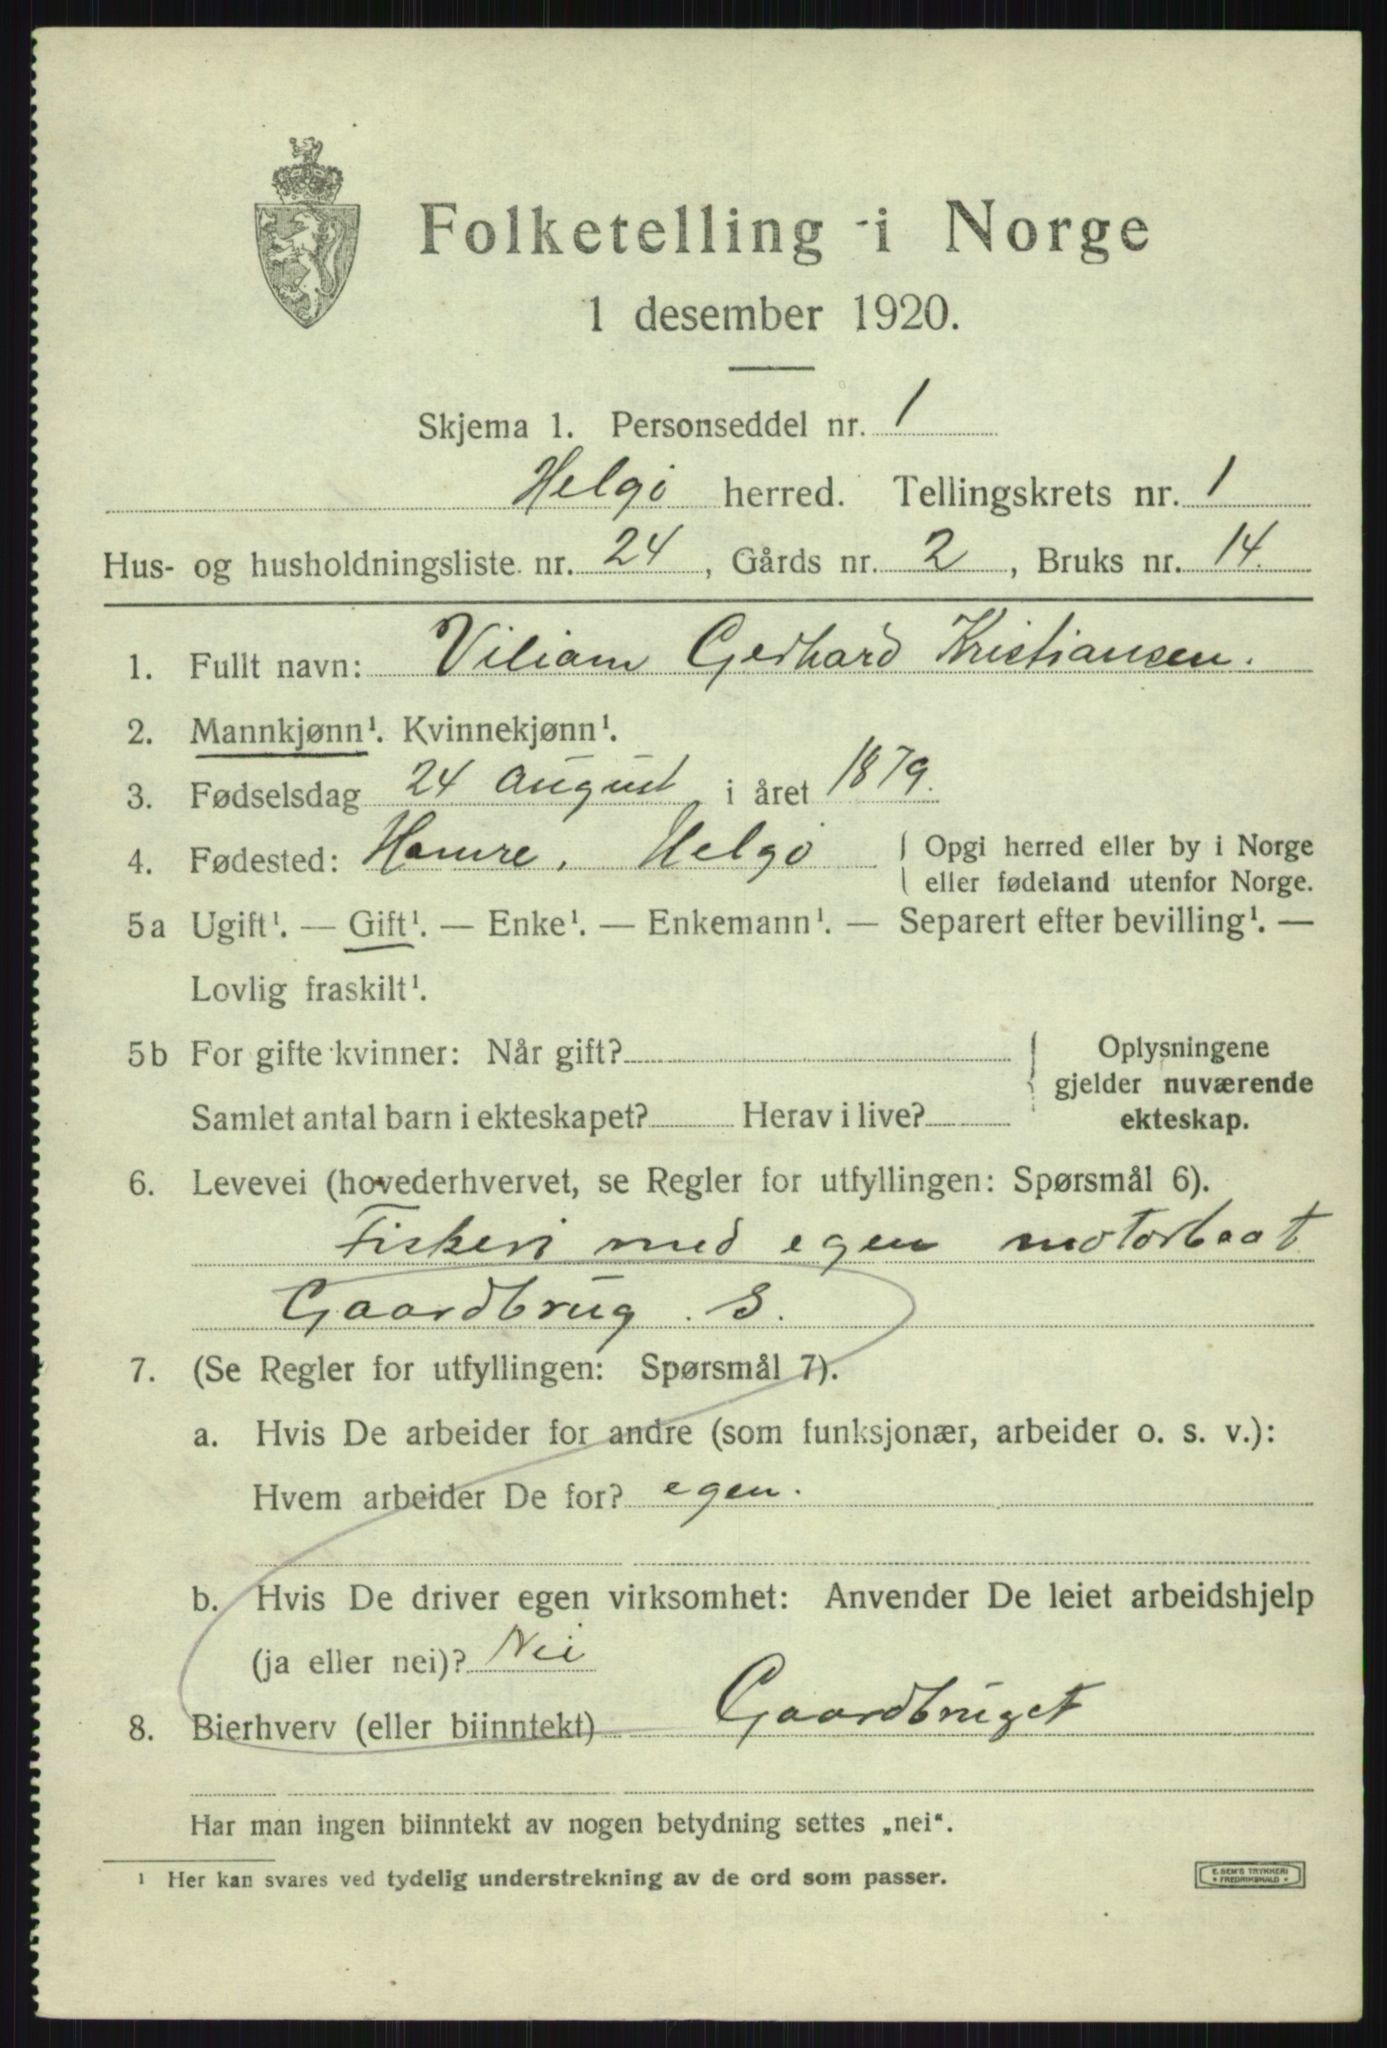 Folketelling i Norge
1 desember 1920.
Skjema 1. Personseddel nr. 1
Helgö herred. Tellingskrets nr. 1
Hus- og husholdningsliste nr. 24, Gårds nr. 2, Bruks nr. 14.
1. Fullt navn: Viliam Gerhard Kristiansen.
2. Mannkjønn¹. Kvinnekjønn¹.
3. Fødselsdag 24 august i året 1879.
4. Fødested: Hamre, Helgö { Opgi herred eller by i Norge
eller fødeland utenfor Norge.
5a Ugift¹. — Gift¹. — Enke¹. — Enkemann¹. — Separert efter bevilling¹. —
Lovlig fraskilt¹.
5b For gifte kvinner: Når gift? { Oplysningene
gjelder nuværende
Samlet antal barn i ekteskapet? Herav i live? ekteskap.
6. Levevei (hovederhvervet, se Regler for utfyllingen: Spørsmål 6).
Fiskeri med egen motorbaat
Gaardbrug. S.
7. (Se Regler for utfyllingen: Spørsmål 7).
a. Hvis De arbeider for andre (som funksjonær, arbeider o. s. v.):
Hvem arbeider De for? egen.
b. Hvis De driver egen virksomhet: Anvender De leiet arbeidshjelp
(ja eller nei)? Nei
8. Bierhverv (eller biinntekt) Gaardbruget
Har man ingen biinntekt av nogen betydning settes „nei“.
¹ Her kan svares ved tydelig understrekning av de ord som passer.
E. SEM'S TRYKKERI
FREDRIKSHALD